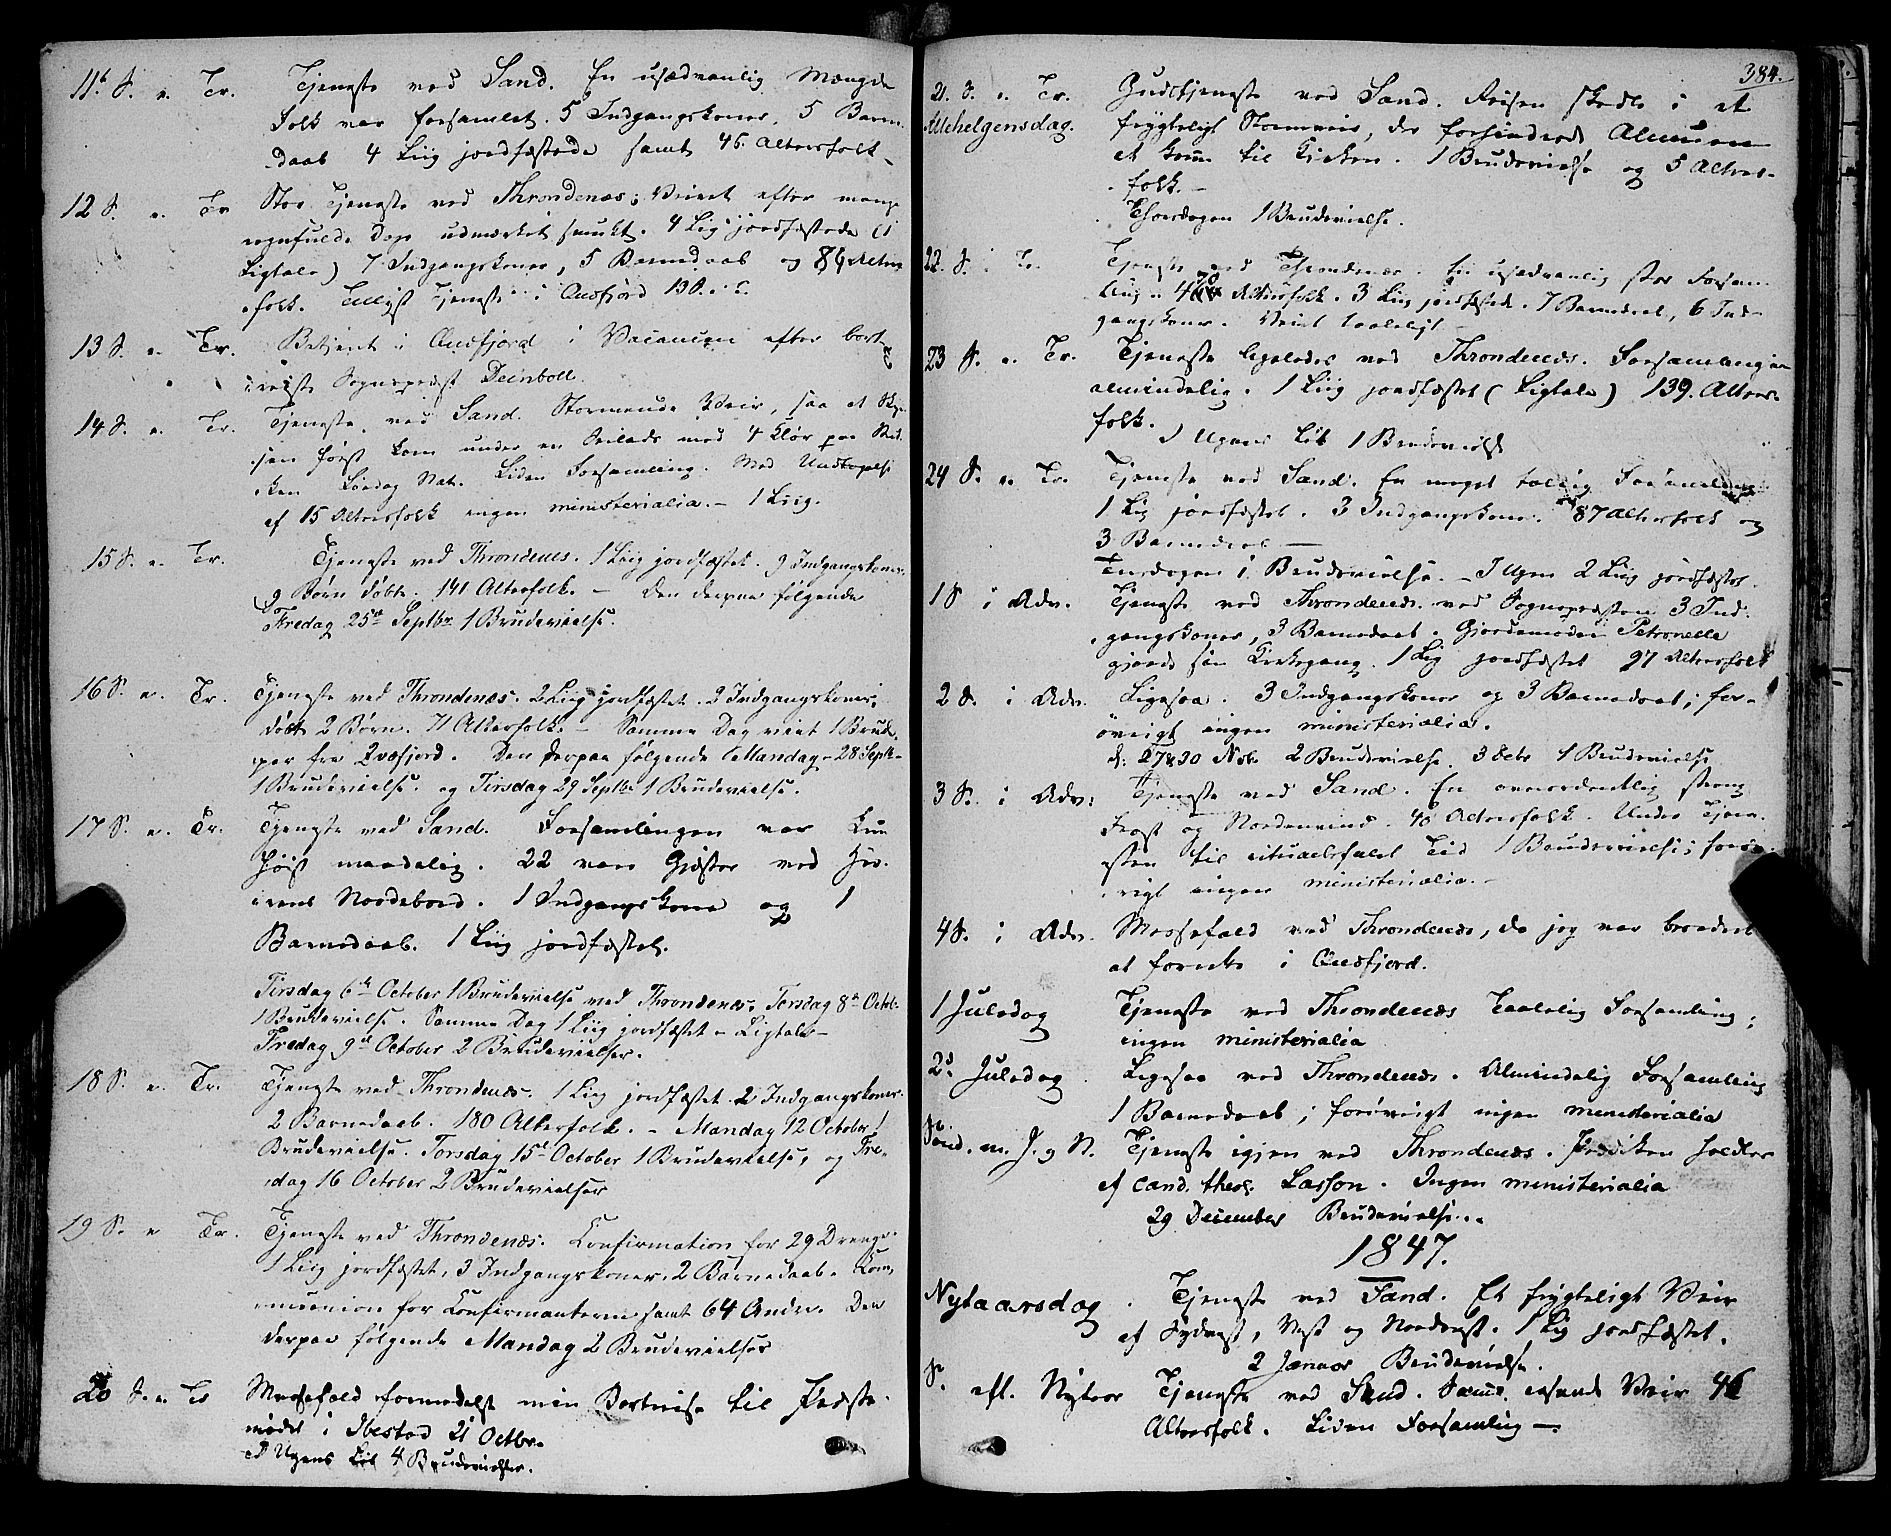 11te S. e. Tr. Tjeneste ved Sand. En usædvanlig Mængde
Folk var forsamlet. 5 Indgangskoner, 5 Barne
daab 4 Liig jordfæstede samt 46 Altersfolk
12 S. e. Tr Stor Tjeneste ved Throndenæs; Veiret efter mange
regnfulde Dage udmærket smukt. 4 Liig jordfæstede (1
Ligtale) 7 Indgangskoner, 5 Barnedaab og 84 Alters
folk. Tjeneste i Qvæfjord
13 S. e. Tr. Betjent i Qvæfjord i Vacancen efter bort
reiste Sognepræst Deinboll.
14 S. e. Tr. Tjeneste ved Sand. Stormende Veir, saa at
først kom under en Seilads med 4 Klør paa
Løverdag Nat. Liden Forsamling. Med Undtagelse
af 15 Altersfolk ingen ministerialia. – 1 Liig.
15 S. e. Tr. Tjeneste ved Throndenes. 1 Liig jordfæstet. 9 Indgangskoner.
9 Børn døbte. 141 Alterfolk. – Den derpaa følgende
Fredag 25de Septbr 1 Brudevielse.
16 S. e. Tr. Tjeneste ved Throndenæs. 2 Liig jordfæstet. 2 Indgangskoner,
døbt 2 Børn. 71 Alterfolk. – Samme Dag viet 1 Brude
par fra Qvæfjord. Den derpaa følgende Mandag – 28 Septbr
1 Brudevielse. og Tirsdag 29 Septbr 1 Brudevielse.
17 S. e. Tr. Tjeneste ved Sand. Forsamlingen var kun
høist maadelig. 22 vare Gjæster ved Her
rens Nadebord. 1 Indgangskone og 1
Barnedaab. 1 Liig jordfæstet.
Tirsdag 6te October 1 Brudevielse ved Throndenæs. Torsdag 8de Octob.
1 Brudevielse. Samme Dag 1 Liig jordfæstet – Ligtale –
Fredag 9de October 2 Brudevielser.
18 S. e. Tr. Tjeneste ved Throndenæs. 1 Liig jordfæstet. 2 Indgangskoner.
2 Barnedaab. 180 Alterfolk. – Mandag 12 October 1
Brudevielse. Torsdag 15de October 1 Brudevielse, og Fre-
dag 16 October 2 Brudevielser
19 S. e Tr. Tjeneste ved Throndenæs. Confirmation for 29 Drenge.
1 Liig jordfæstet, 3 Indgangskoner. 2 Barnedaab. Com,
munion for Confirmanterne samt 64 Andre. Den
derpaa følgende Mandag 2 Brudevielser
20 S. e. Tr Messefald formedelst min Bortreise til Præste-
mødet i Ibestad 21 Octbr.
I Ugens Løb 4 Brudevielser.
384.
21. S. e. Tr. Gudstjeneste ved Sand. Reisen skedte i et
Allehelgensdag. frygteligt Stormveir, der forhindrede Almuen
at komme til Kirken. 1 Brudevielse og 5 Alters-
folk. –
Thorsdagen 1 Brudevielse.
22. S. e. Tr. Tjeneste ved Throndenæs. En usædvanlig stor Forsam
ling. Altersfolk. 3 Liig jordfæstede. 7 Barnedaab, 6 Ind-
gangskoner. Veiret taaleligt
23 S. e. Tr. Tjeneste ligeledes ved Throndenæs. Forsamlingen
almindelig. 1 Liig jordfæstet (Ligtale) 139. Alters-
folk.
I Ugens Løb 1 Brudevielse
24 S. e. Tr. Tjeneste ved Sand. En meget talrig Forsamling
1 Liig jordfæstet. 3 Indgangskoner. 87 Altersfolk og
3 Barnedaab –
Tirsdagen 1 Brudevielse. – I Ugen 2 Liig jordfæstet.
1 S i Adv. Tjeneste ved Throndenæs ved Sognepræsten 3 Ind-
gangskoner, 3 Barnedaab. Gjordemoder Petronelle
gjorde sin Kirkegang. 1 Liig jordfæstet 97 Altersfolk
2 S. i Adv. Ligesaa. 3 Indgangskoner og 3 Barnedaab; for-
øvrigt ingen ministerialia.
d: 27 & 30 Nov. 2 Brudevielse. 3 Debr 1 Brudevielse
3 S. i Adv: Tjeneste ved Sand. En overordentlig streng
Frost og Nordenvind. 40 Altersfolk. Under Tjene-
sten til ritualbefalet Tid 1 Brudevielse; forøv-
rigt ingen ministerialia. –
4 S. i Adv. Messefald ved Throndenæs, da jeg var beordret
at forrette i Qvæfjord.
1 Juledag Tjeneste ved Throndenæs Taalelig Forsamling;
ingen ministerialia
2d Juledag Ligesaa ved Throndenæs. Almindelig Forsamling
1 Barnedaab; forøvrigt ingen ministerialia
Sønd. m. J. og N. Tjeneste igjen ved Throndenæs. Prædiken holdtes
af cand. theol. Lasson. Ingen ministerialia
29 December Brudevielse.
1847.
Nytaarsdag. Tjeneste ved Sand. Et frygteligt Veir
af Sydvest, Vest og Nordvest. 1 Liig jordfæstet.
2 Januar Brudevielse.
S. eft. Nytaar Tjeneste ved Sand. Samme rasende Veir 46
Altersfolk. Liden Forsamling –.